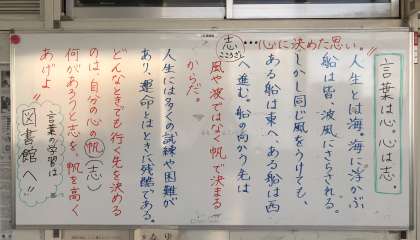 言葉は心。心は志。
志…心に決めた思い。
こころざし
人生とは海。海に浮かぶ
船は皆、波風にさらされる。
しかし同じ風をうけても、
ある船は東へ、ある船は西
へ進む。船の向かう先は
風や波ではなく帆で決まる
からだ。
人生には多くの試練や困難が
あり、運命とはときに残酷である。
どんなときでも行く先を決める
のは、自分の心の帆(志)
何があろうと志を、帆を高く
あげよ
言葉の学習は
図書館へ!!